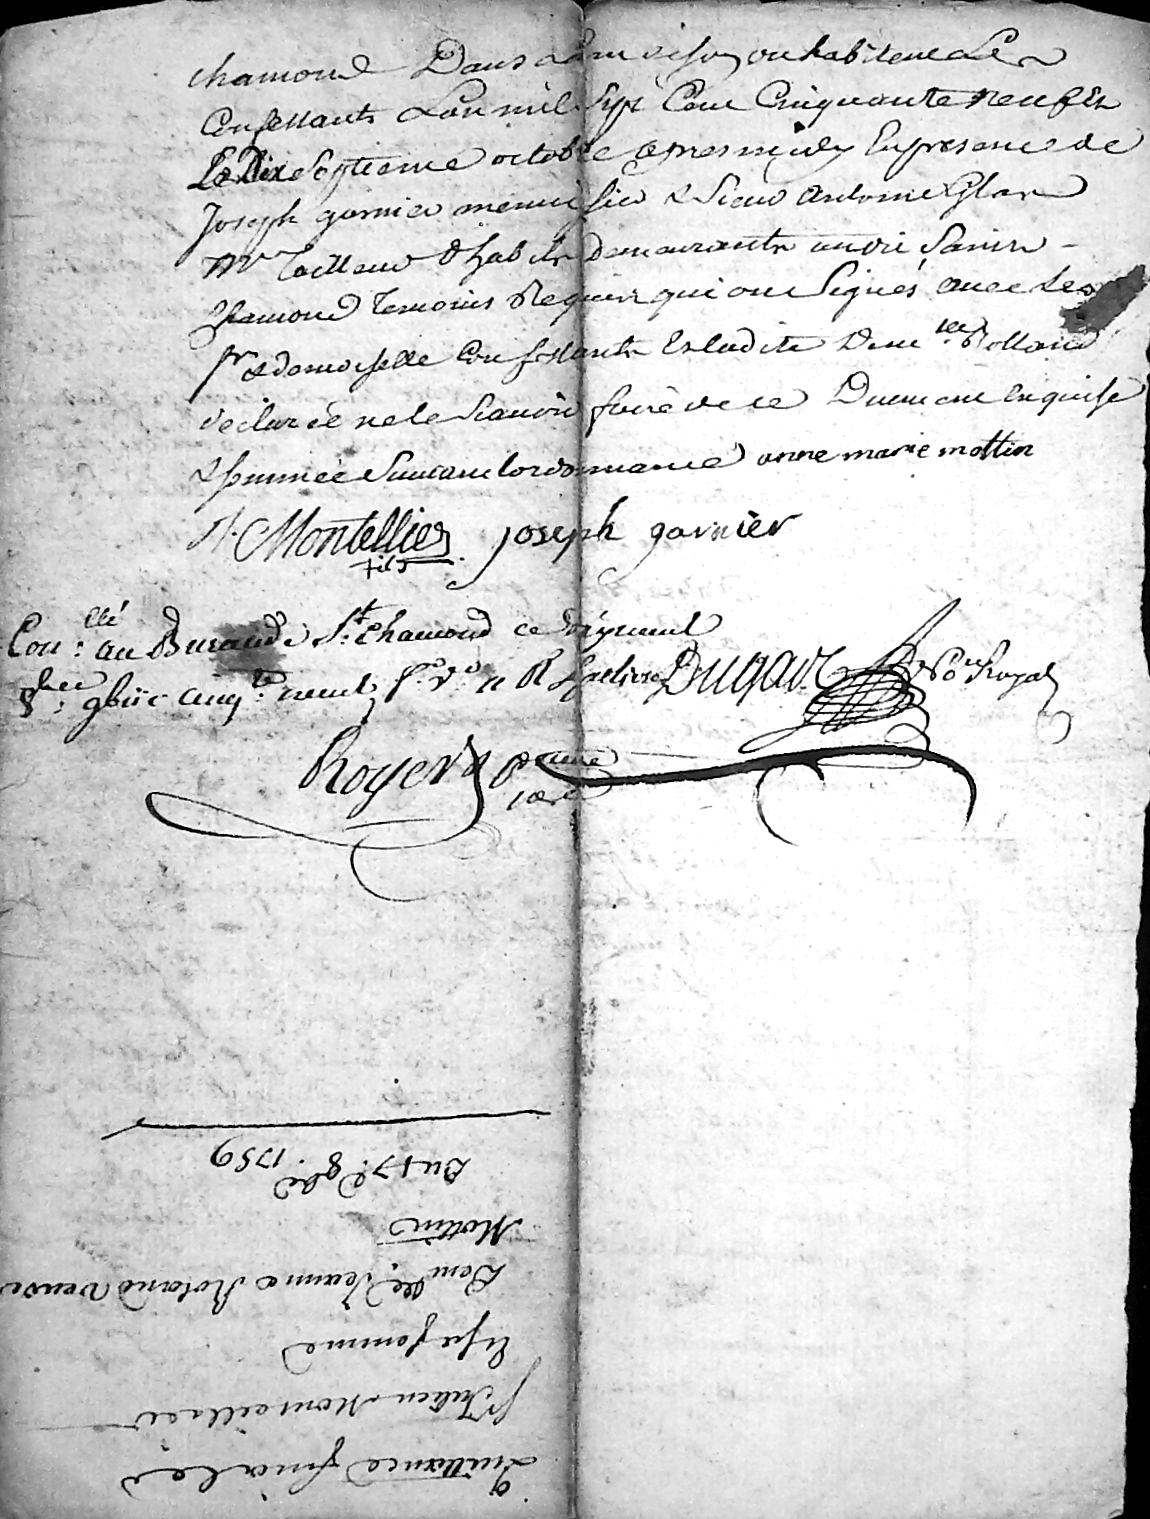 chamond Dans la maison ou habitent Les
Confessants Lan mil Sept Cent Cinquante neuf Et
Le Dix Septieme octobre apres midy En presence de
Joseph garnier menuisier & Sieur Antoine Glas
Mre Tailleur d'habits demeurants audit Saint
Chamond Temoins Requis qui ont Signés avec Les
sr & demoiselle Confessants Et ladite Demlle Rolland
declaré ne le Scavoir faire de ce Duement Enquise
& sommée Suivant lordonnance anne marie mottin
J. Montellier fils joseph garnier
Conllé au Bureau de St chamond ce
gbre cinqte neuf Dugas No Royal
Royer
Quittance finale
sr Julien Monteillier
Et sa femme
Demlle Jeanne Roland veuve
Mottin
Du 17 8bre 1759